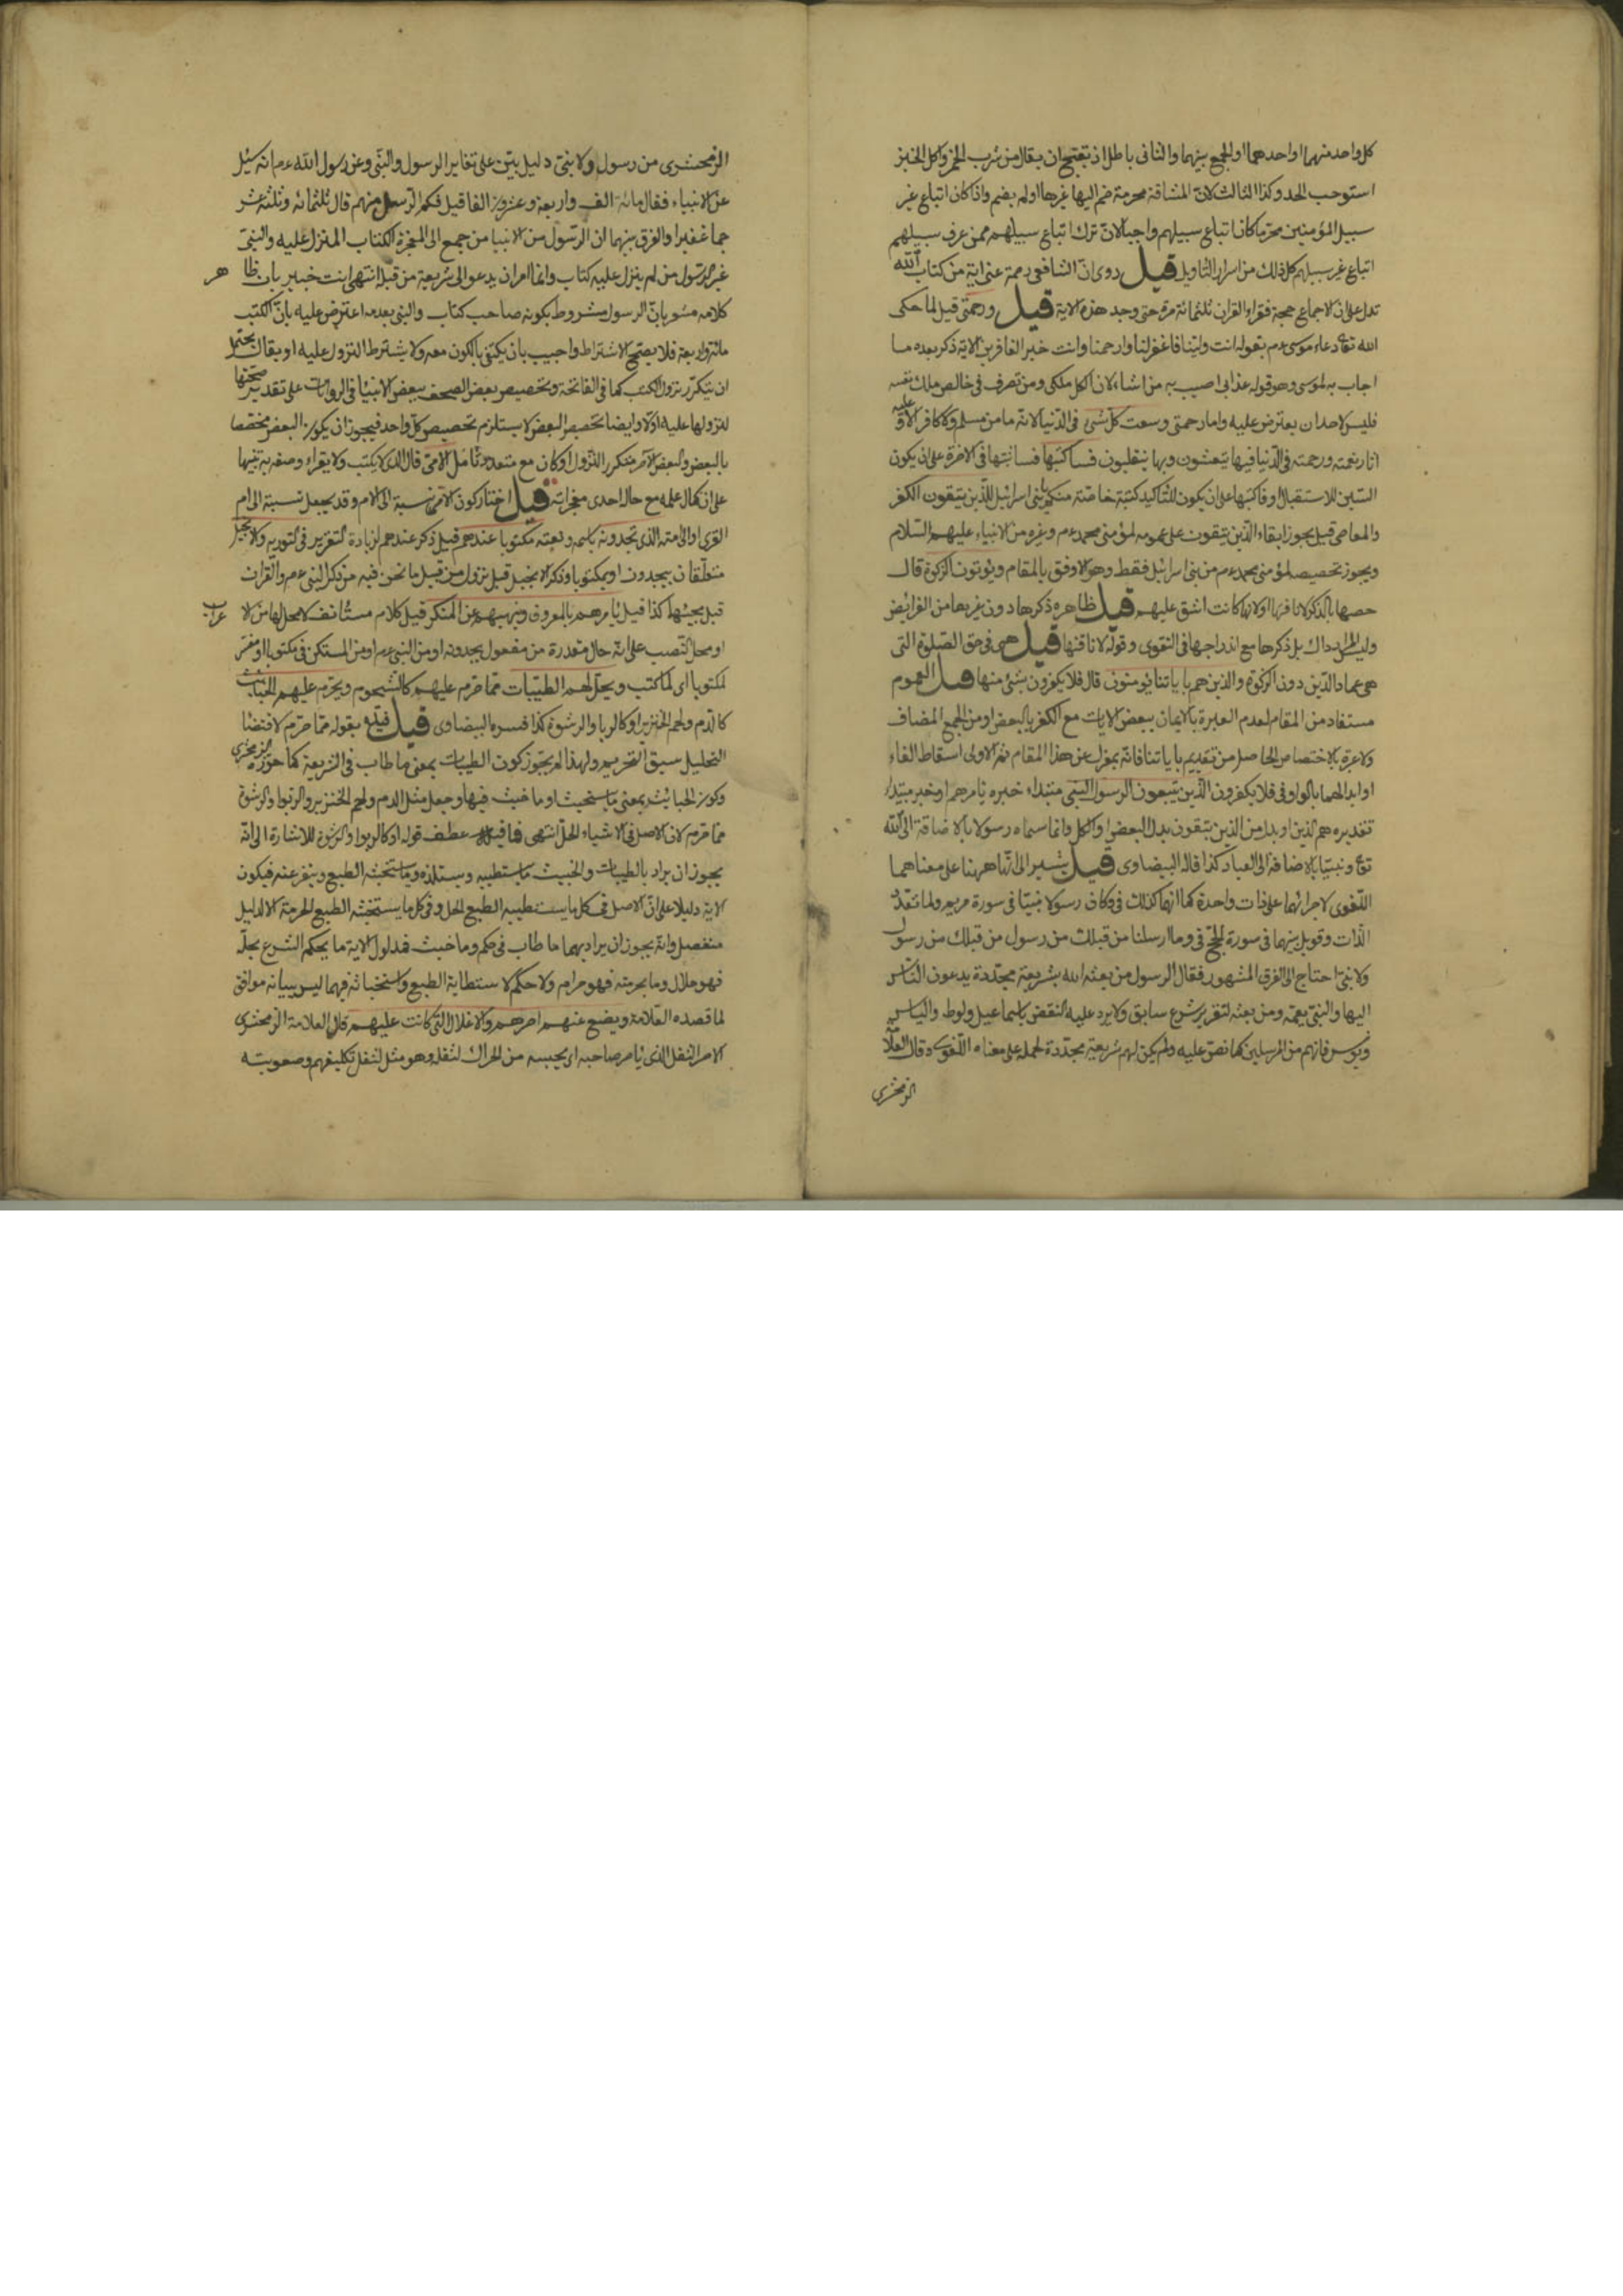 كل واحد منهما او احدهما او الجمع بينهما والثانى باطل اذ يقبح ان يقال من شرب الخمر واكل الخبز
استوجب الحد وكذا الثالث لان المشاقة محرمة ضم اليها غيرها او لم يضم واذا كان اتباع غير
سبيل المؤمنين محرما كان اتباع سبيلهم واجبا لان ترك اتباع سبيلهم ممن عرف سبيلهم
اتباع غير سبيلهم كل ذلك من اسرار التاويل قيل روى ان الشافعى رحمة عن اية من كتاب الله
تدل على ان الاجماع حجة فقراء القران ثلثمائة مرة حتى وجد هذه الاية قيل ورحمتى قيل لما حكى
الله تعا دعاء موسى ع م بقوله انت ولينا فاغفر لنا وارحمنا وانت خير الغافرين الاية ذكر بعده ما
اجاب به لموسى وهو قوله عذابى اصيب به من اشاء لان الكل ملكى ومن تصرف فى خالص ملك نفسه
فليس لاحد ان يعترض عليه واما رحمتى وسعت كل شئ فى الدنيا لانه ما من مسلم ولا كافر الا و عليه
اثار نعمته ورحمته فى الدنيا فيها يتعيشون وبها ينقلبون فساكتبها فسا ثبتها فى الاخرة على ان يكون
السين للاستقبال او فاكتبها على ان يكون للتاكيد كتبة خاصة منكم يا بنى اسرائيل للذين يتقون الكفر
والمعاصى قيل يجوز ابقاء الذين يتقون على عمومه لمؤمنى محمد ع م وغيره من الانبياء عليهم السلام
ويجوز تخصيصه لمؤمنى محمد ع م من بنى اسرائيل فقط وهو الاوفق بالمقام ويؤتون الزكوة قال
خصها بالذكر لانافتها او لانها كانت اشق عليهم قيل ظاهره ذكرها دون غيرها من الفرائض
وليس المراد ذاك بل ذكرها مع اندراجها فى التقوى وقوله لانافتها قيل هى فى حق الصلوة التى
هى عماد الدين دون الزكوة والذين هم باياتنا يؤمنون قال فلا يكفرون بشئ منها قيل العموم
مستفاد من المقام لعدم العبرة بالايمان ببعض الايات مع الكفر بالبعض او من الجمع المضاف
ولا عبرة بالاختصاص الحاصل من تقديم باياتنا فانه بمعزل عن هذا المقام ثم الاولى اسقاط الفاء
او ابدالهما بالواو فى فلا يكفرون الذين يتبعون الرسول النبى مبتداء خبره يأمرهم او خبر مبتداء
تقديره هم الذين او بدل من الذين يتقون بدل البعض او الكل وانما سماه رسولا بالاضافة الى الله
تعا ونبيا بالاضافة الى العباد كذا قاله البيضاوى قيل يشير الى انها ههنا على معناهما
اللغوى لاجرائهما على ذات واحدة كما انهما كذلك فى وكان رسولا نبيا فى سورة مريم ولما تعدد
الذات وقوبل بينهما فى سورة الحج فى وما ارسلنا من قبلك من رسول
ولا نبى احتاج الى الفرق المشهور فقال الرسول من بعثه الله بشريعة مجددة يدعون الناس
اليها والنبى يعمه ومن بعثه لتقرير شرع سابق ولا يرد عليه النقض باسماعيل ولوط والياس
ويونس فانهم من المرسلين كما نص عليه ولم يكن لهم شريعة مجددة لحمله على معناه اللغوى وقال العلا
الزمخشرى
الزمخشرى من رسول ولا نبى دليل بين على تغاير الرسول والنبى وعن رسول الله ع م انه سئل
عن الانبياء فقال مائة الف واربعة وعشرون الفا قيل فكم الرسل منهم قال ثلثمائة وثلثة عشر
جما غفيرا والفرق بينهما ان الرسول من الانبيا من جمع الى المعجزة الكتاب المنزل عليه والنبى
غير الرسول من لم ينزل عليه كتاب وانما امر ان يدعو الى شريعة من قبله انتهى انت خبير بان ظاهر
كلامه مشعر بان الرسول مشروط بكونه صاحب كتاب والنبى بعدمه اعترض عليه بان الكتب
مائة واربعة فلا يصح الاشتراط واجيب بان يكتفى بالكون معه ولا يشترط النزول عليه او يقال يحتمل
ان يتكرر نزول الكتب كما فى الفاتحة وتخصيص بعض الصحف ببعض الانبيا فى الروايات على تقدير صحتها
لنزولها عليه اولا وايضا تخصيص البعض لا يستلزم تخصيص كل واحد فيجوز ان يكون البعض مختصا
بالبعض والبعض الاخر متكرر النزول او كان مع متعدد تأمل الامى قال الذى لا يكتب ولا يقراء وصفه به تنبيها
على ان كمال علمه مع حاله احدى معجزاته قيل اختار كون الامى نسبة الى الام وقد يجعل نسبة الى ام
القرى او الى امته الذى تجدونه باسمه ونعته مكتوبا عندهم قيل ذكر عندهم لزيادة التقرير فى التورية والانجيل
متعلقان بيجدون او بمكتوبا وذكر الانجيل قبل نزوله من قبيل ما نحن فيه من ذكر النبى ع م والقران
قبل مجيئهما كذا قيل يأمرهم بالمعروف وينهيهم عن المنكر قيل كلام مستانف لا محل لها من الاعراب
او محل النصب على انه حال مقدرة من مفعول يجدونه او من النبى ع م او من المستكن فى مكتوبا او مفسر
لمكتوبا اى لما كتب ويحل لهم الطيبات مما حرم عليهم كالشحوم ويحرم عليهم الخبائث
كالدم ولحم الخنزير او كالربا والرشوة كذا فسره البيضاوى قيل قيده بقوله مما حرم لاقتضا
التحليل سبق التحريم ولهذا لم يجوز كون الطيبات بمعنى ما طاب فى الشريعة كما جوزه الزمخشرى
وكون الخبائث بمعنى ما يستخبث او ما خبث فيها وجعل مثل الدم ولحم الخنزير والربوا والرشوة
مما حرم لان الاصل فى الاشياء الحل انتهى عطف قوله او كالربوا والرشوة للاشارة الى انه
يجوز ان يراد بالطيبات والخبيث ما يستطيبه ويستلذه وما يستخبثه الطبع وينفر عنه فيكون
الاية دليلا على ان الاصل فى كل ما يستطيبه الطبع الحل وفى كل ما يستخبثه الطبع الحرمة الا لدليل
منفصل وانه يجوز ان يراد بهما ما طاب فى حكم وما خبث فمدلول الاية ما يحكم الشرع بحله
فهو حلال وما بحرمته فهو حرام ولا حكم لاستطابة الطبع واستخباثه فيهما ليس ببيانه موافق
لما قصده العلامة ويضع عنهم اصرهم والاغلال التى كانت عليهم قال العلامة الزمخشرى
الاصر الثقل الذى يأصر صاحبه اى يحبسه من الحراك لثقله وهو مثل لثقل تكليفهم وصعوبته